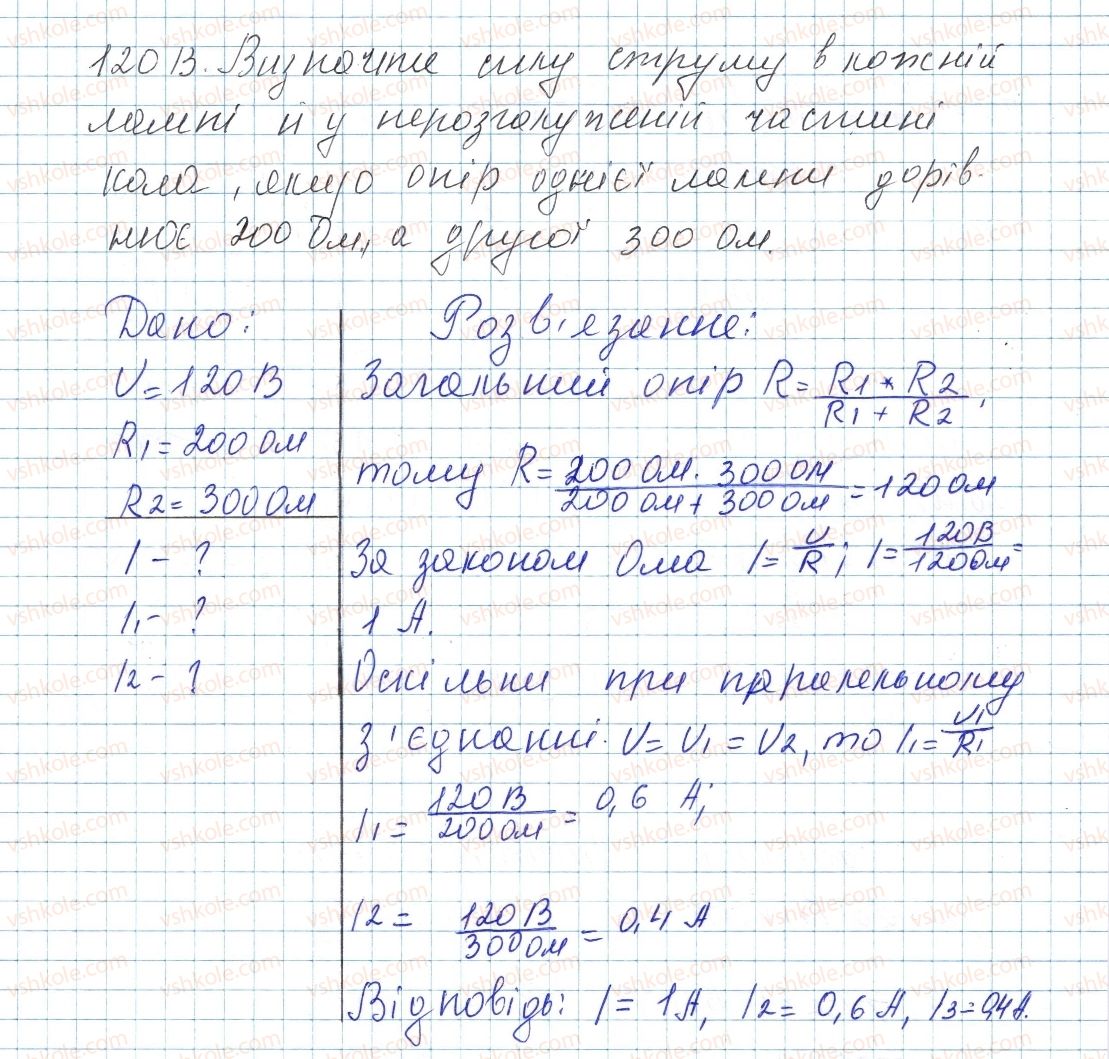 120 В. Визначте силу струму в кожній
лампі й у нерозгалуженій частині
кола, якщо опір однієї лампи дорів-
нює 200 Ом, а другої 300 Ом.
Дано:
U = 120 В
R1 = 200 Ом
R2 = 300 Ом
I - ?
I1 - ?
I2 - ?
Розв'язання:
Загальний опір R = R1 * R2 / R1 + R2,
тому R = 200 Ом · 300 Ом / 200 Ом + 300 Ом = 120 Ом
За законом Ома I = U / R; I = 120 В / 120 Ом =
1 А.
Оскільки при паралельному
з'єднанні U = U1 = U2, то I1 = U1 / R1
I1 = 120 В / 200 Ом = 0,6 А;
I2 = 120 В / 300 Ом = 0,4 А
Відповідь: I = 1 А, I2 = 0,6 А, I3 = 0,4 А.
vshkole.com